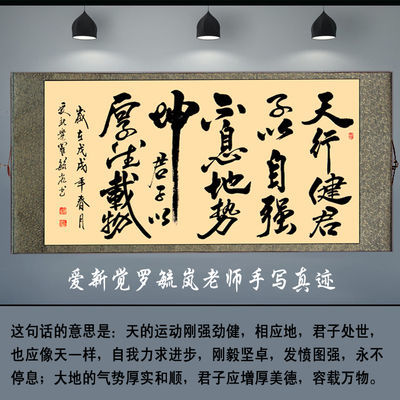 天行健君
子以自强
不息地势
坤君子以
厚德载物
岁在戊戌年春月
爱新觉罗毓岚书
爱新觉罗毓岚老师手写真迹
这句话的意思是：天的运动刚强劲健，相应地，君子处世，
也应像天一样，自我力求进步，刚毅坚卓，发愤图强，永不
停息；大地的气势厚实和顺，君子应增厚美德，容载万物。